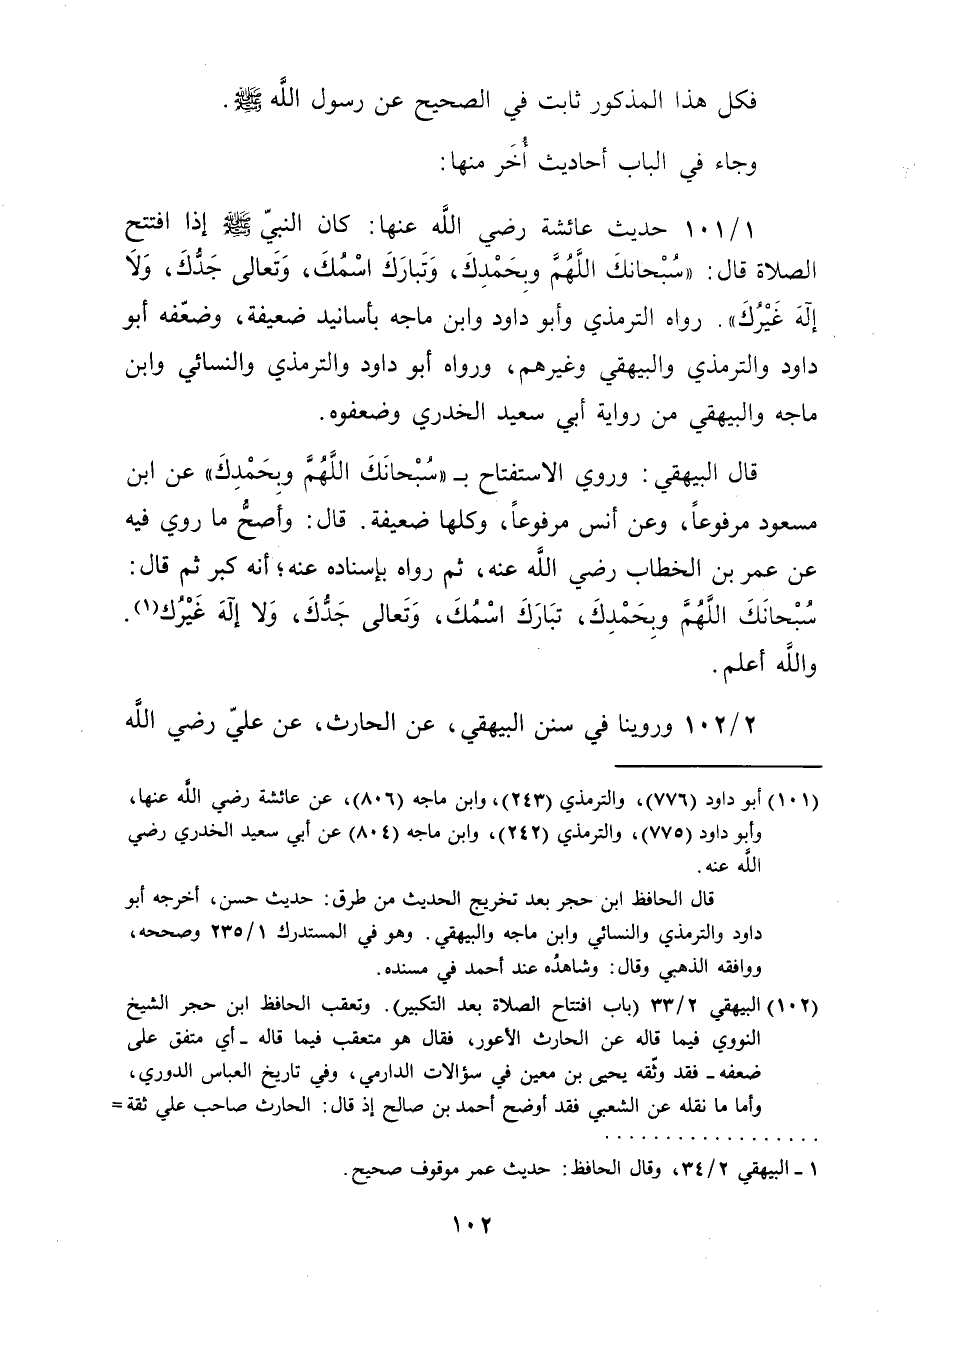 فكل هذا المذكور ثابت في الصحيح عن رسول اللَّه ﷺ.
وجاء في الباب أحاديث أُخَر منها:
١٠١/١ حديث عائشة رضي اللَّه عنها: كان النبيّ ﷺ إذا افتتح
الصلاة قال: «سُبْحانكَ اللَّهُمَّ وبِحَمْدِكَ، وَتَبارَكَ اسْمُكَ، وَتَعالى جَدُّكَ، وَلَا
إلَهَ غَيْرُكَ». رواه الترمذي وأبو داود وابن ماجه بأسانيد ضعيفة، وضعّفه أبو
داود والترمذي والبيهقي وغيرهم، ورواه أبو داود والترمذي والنسائي وابن
ماجه والبيهقي من رواية أبي سعيد الخدري وضعفوه.
قال البيهقي: وروي الاستفتاح بـ «سُبْحانَكَ اللَّهُمَّ وبِحَمْدِكَ» عن ابن
مسعود مرفوعاً، وعن أنس مرفوعاً، وكلها ضعيفة. قال: وأصحُّ ما روي فيه
عن عمر بن الخطاب رضي اللَّه عنه، ثم رواه بإسناده عنه؛ أنه كبر ثم قال:
سُبْحانَكَ اللَّهُمَّ وبِحَمْدِكَ، تبَارَكَ اسْمُكَ، وَتَعالى جَدُّكَ، وَلا إلَهَ غَيْرُك(١).
واللَّه أعلم.
١٠٢/٢ وروينا في سنن البيهقي، عن الحارث، عن عليّ رضي اللَّه
(١٠١) أبو داود (٧٧٦)، والترمذي (٢٤٣)، وابن ماجه (٨٠٦)، عن عائشة رضي اللَّه عنها،
وأبو داود (٧٧٥)، والترمذي (٢٤٢)، وابن ماجه (٨٠٤) عن أبي سعيد الخدري رضي
اللَّه عنه.
قال الحافظ ابن حجر بعد تخريج الحديث من طرق: حديث حسن، أخرجه أبو
داود والترمذي والنسائي وابن ماجه والبيهقي. وهو في المستدرك ٢٣٥/١ وصححه،
ووافقه الذهبي وقال: وشاهدُه عند أحمد في مسنده.
(١٠٢) البيهقي ٣٣/٢ (باب افتتاح الصلاة بعد التكبير). وتعقب الحافظ ابن حجر الشيخ
النووي فيما قاله عن الحارث الأعور، فقال هو متعقب فيما قاله ـ أي متفق على
ضعفه ـ فقد وثّقه يحيى بن معين في سؤالات الدارمي، وفي تاريخ العباس الدوري،
وأما ما نقله عن الشعبي فقد أوضح أحمد بن صالح إذ قال: الحارث صاحب علي ثقة =
..................
١ ـ البيهقي ٣٤/٢، وقال الحافظ: حديث عمر موقوف صحيح.
١٠٢